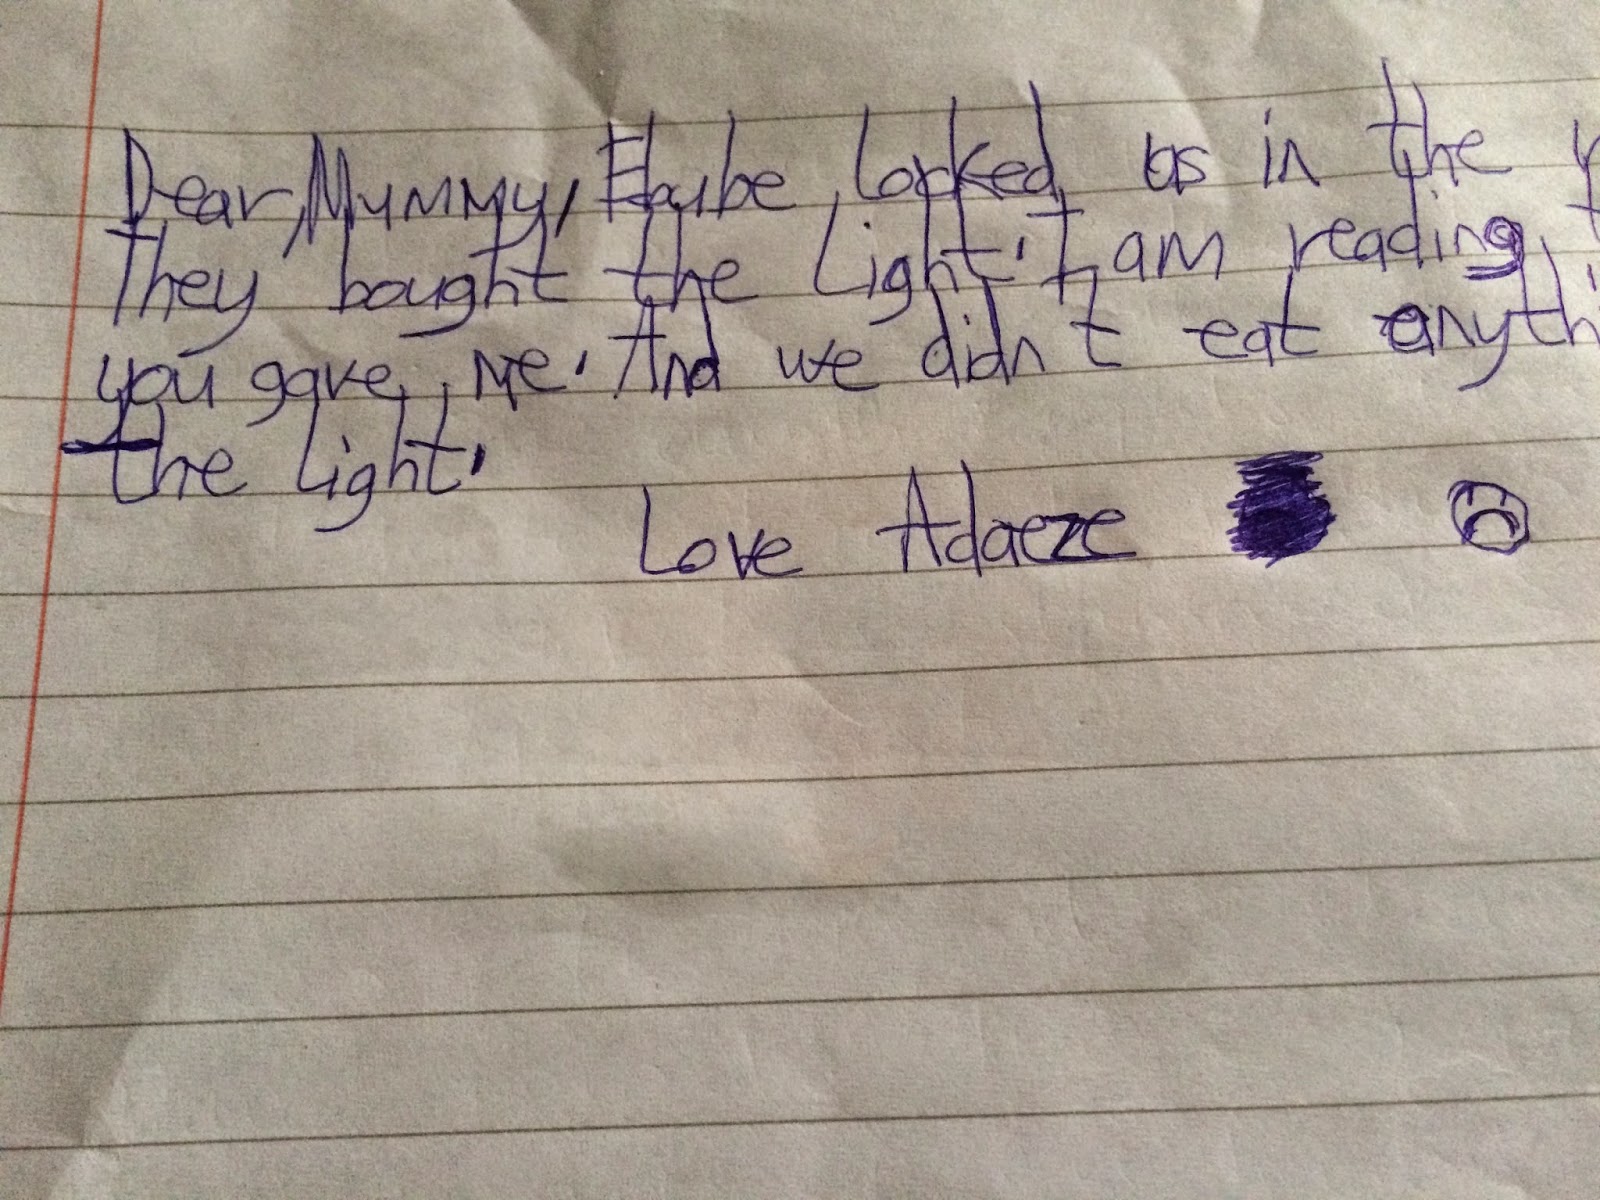 Dear, Mummy, Ebube locked us in the
They bought the light. I am reading
you gave me. And we didn't eat anythi
the light.
Love Adaeze